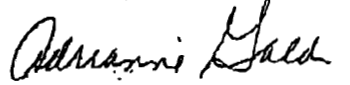 Adrianne Gald